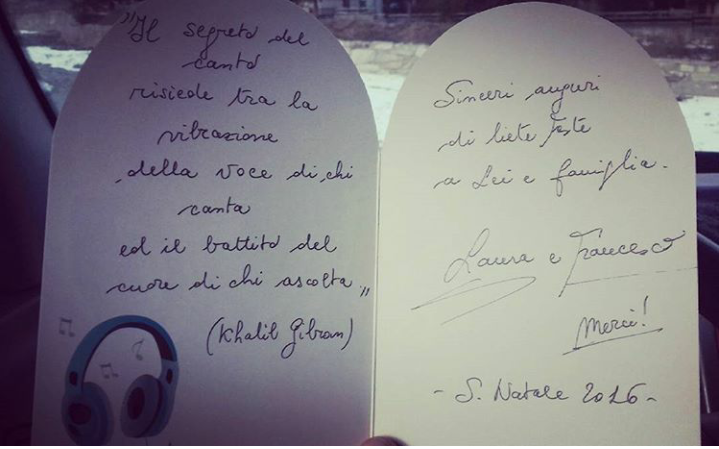 "Il segreto del
canto
risiede tra la
vibrazione
della voce di chi
canta
ed il battito del
cuore di chi ascolta„
(Khalil Gibran)
Sinceri auguri
di liete feste
a Lei e famiglia.
Laura e Francesco
Merci!
- S. Natale 2016 -